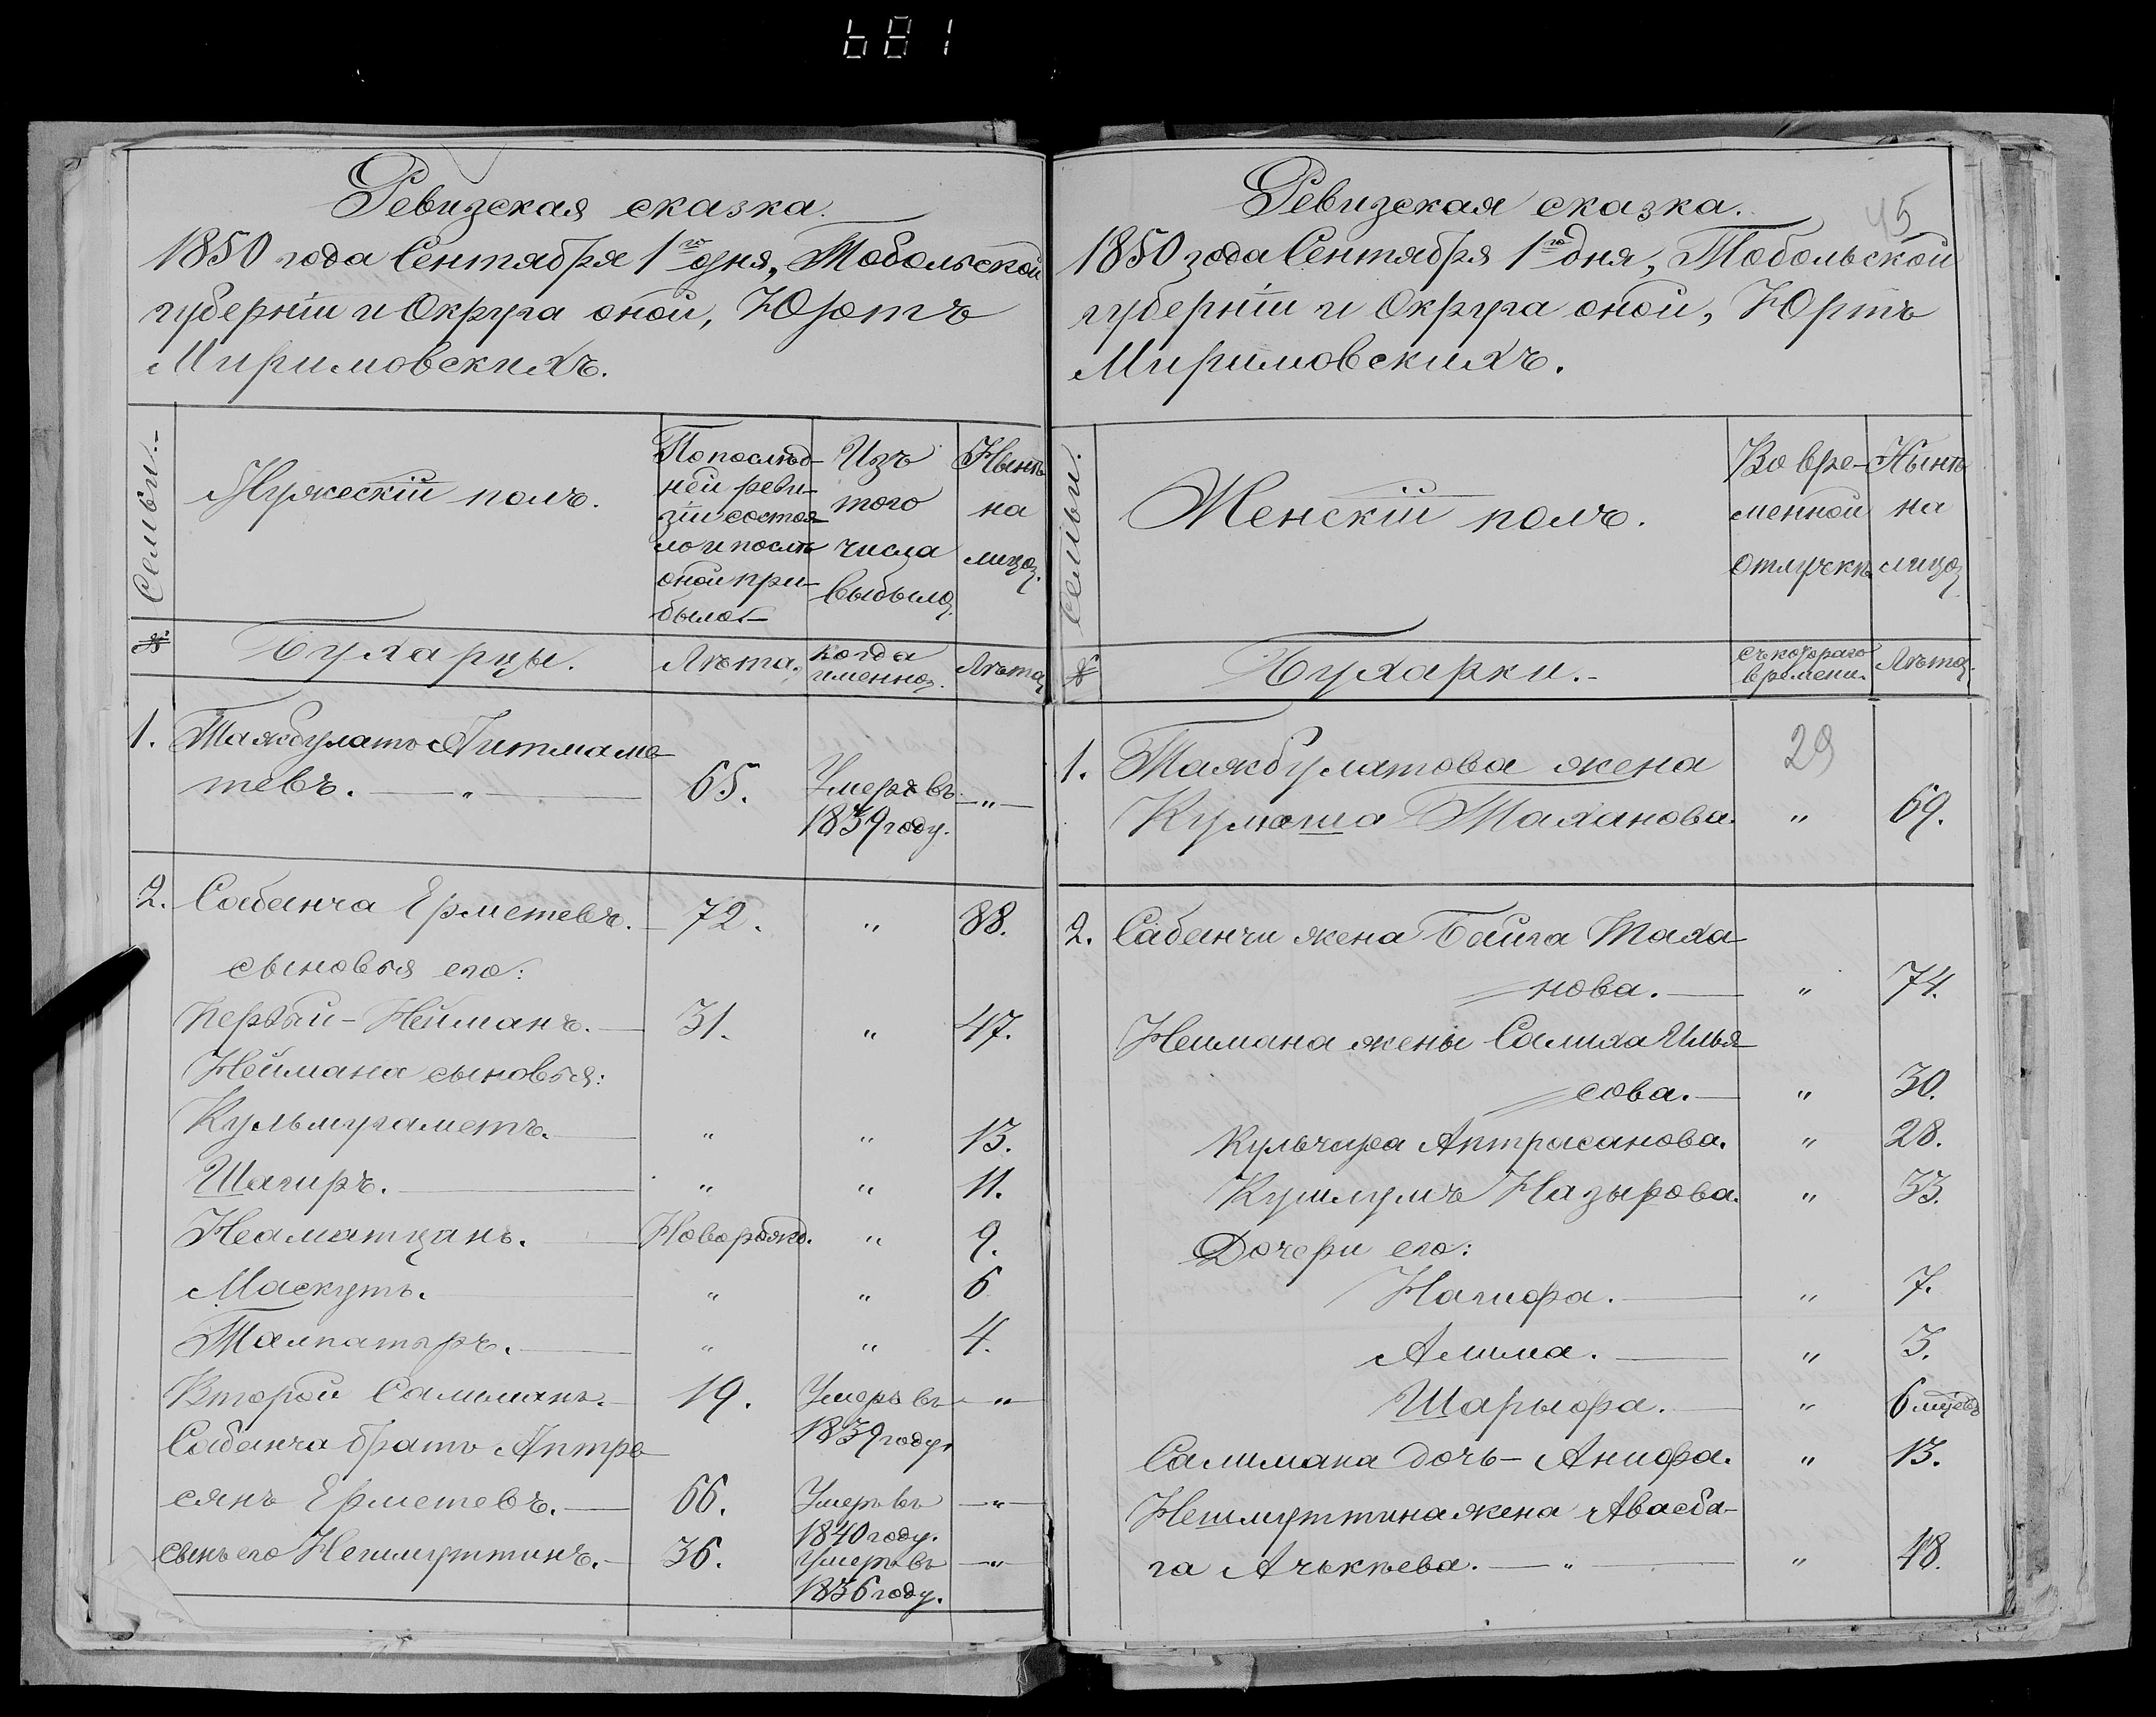 681
Ревизская сказка.
1850 года Сентября 1го дня, Тобольской
губернiи и Округа оной, Юртъ
Миримовскихъ.
Семьи.
Мужескiй полъ.
По послѣд-
ней реви-
зiи состоя-
ло и послѣ
оной при-
было.
Изъ
того
числа
выбыло.
Нынѣ
на
лицо.
№
Бухарцы.
Лѣта.
когда
именно.
Лѣта.
1. Таякбулатъ Аитмаме-
тевъ. — " — 65. Умеръ въ — " —
1839 году.
2. Сабанча Ерметевъ. — 72. " 88.
сыновья его:
Первый – Нейманъ. — 31. " 47.
Неймана сыновья:
Кульмугаметъ. — " " 13.
Шагиръ. — " " 11.
Неаматцанъ. Новорожд. " 9.
Маскутъ. — " " 6
Талпатыръ. — " " 4.
Второй Салиманъ. — 19. Умеръ въ — "
1839 году.
Сабанча братъ Аптра-
сянъ Ерметевъ. — 66. Умеръ въ — "
1840 году.
сынъ его Нешмуттинъ. — 36. Умеръ въ — "
1836 году.
45
Ревизская сказка.
1850 года Сентября 1го дня, Тобольской
губернiи и Округа оной, Юртъ
Миримовскихъ.
Семьи.
Женскiй полъ.
Во вре-
менной
отлучкѣ
Нынѣ
на
лицо.
№
Бухарки.
съ котораго
времени.
Лѣта.
29
1. Таякбулатова жена
Кумаша Маханова. " 69.
2. Сабанчи жена Байга Маха-
нова. — " 74.
Неимана жены Салиха Илья-
сова. — " 30.
Кульчира Аптрасанова. " 28.
Кушлумъ Назырова. " 33.
Дочери его:
Нагифа. — " 7.
Алима. — " 3.
Шарыфа. — " 6 мцевъ
Салимана дочь – Анифа. " 13.
Нешмуттина жена Авасба-
га Ачькеева. — " — " 48.